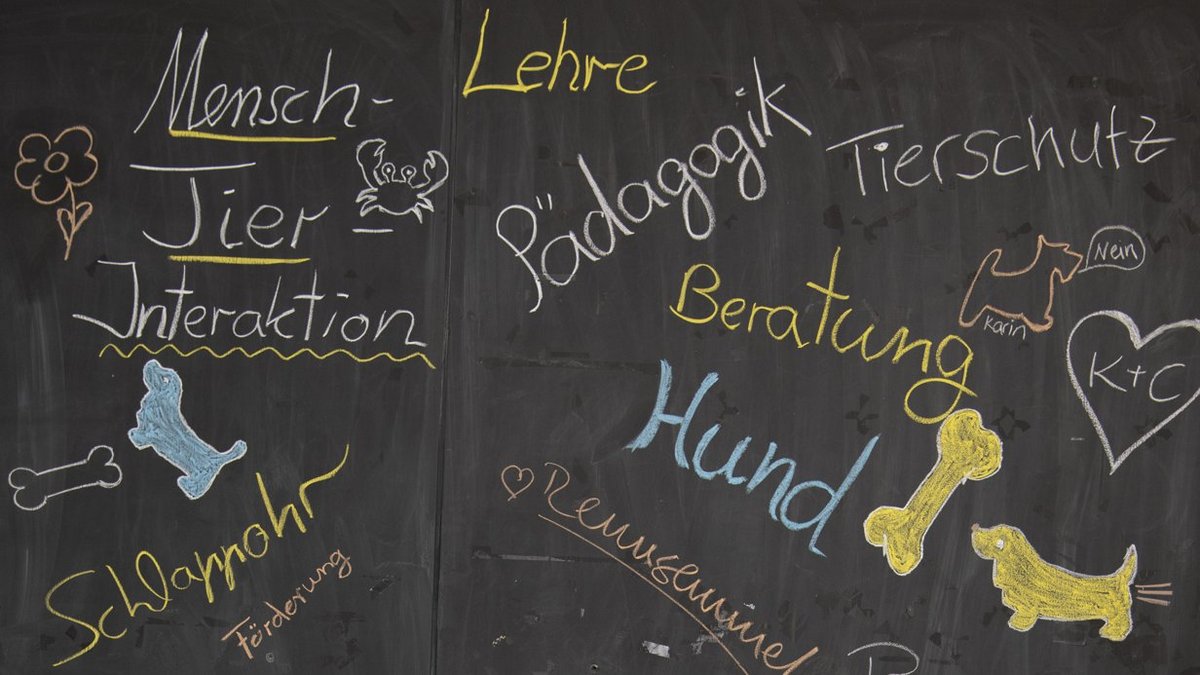 Mensch-
Tier-
Interaktion
Lehre
Pädagogik
Tierschutz
Beratung
Nein
Karin
K+C
Hund
Schlappohr
Förderung